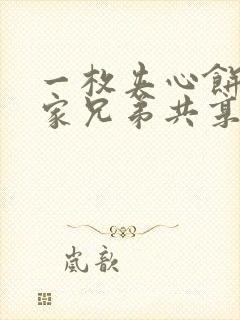 一枚夹心餅
家兄弟共某
嵐歆